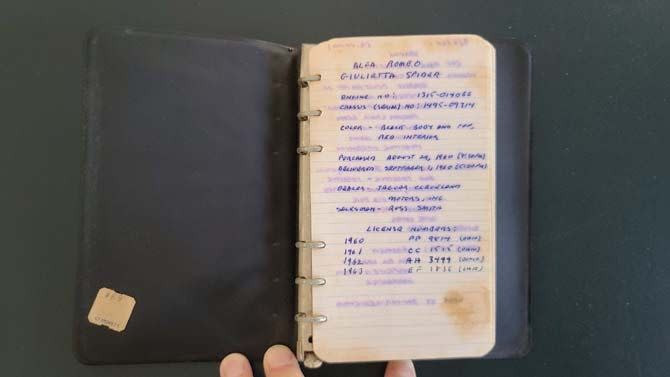 ALFA ROMEO
GIULIETTA SPIDER
ENGINE NO: 1315-014066
CHASSIS (SERIAL) NO: 1495-09714
COLOR - BLACK BODY AND TOP,
RED INTERIOR
PURCHASED AUGUST 29, 1960
DELIVERED SEPTEMBER 1, 1960
DEALER - JAGUAR CLEVELAND
MOTORS, INC
SALESMAN - ROSS SMITH
LICENSE NUMBERS:
1960 PP 9814 (OHIO)
1961 CC 1515 (OHIO)
1962 AH 3499 (OHIO)
1963 EF 1836 (OHIO)